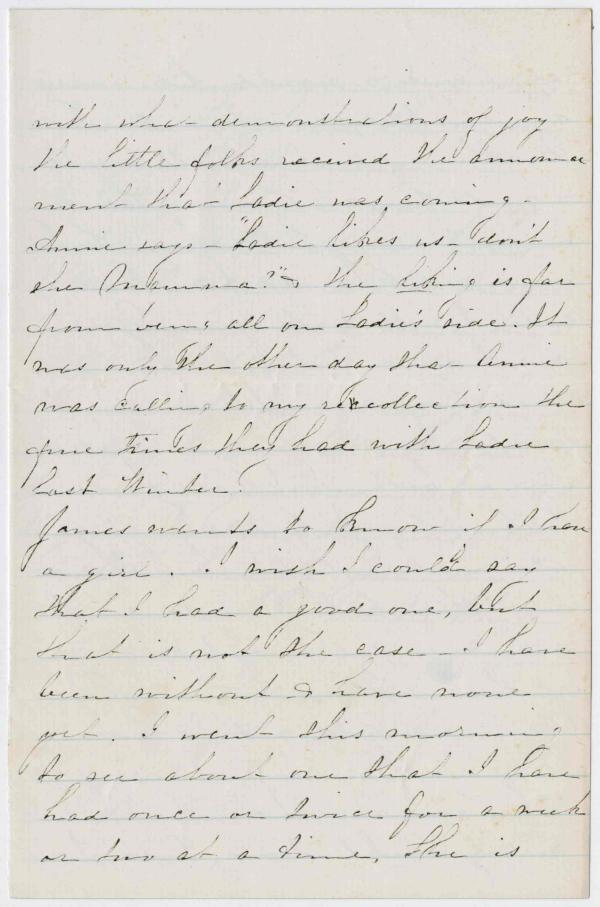 with what demonstrations of joy
the little folks received the announce
ment that Sadie was coming.
Annie says - "Sadie likes us - don't
she Mamma?" & the liking is far
from being all on Sadie's side. It
was only the other day that Annie
was calling to my recollection the
fine times they had with Sadie
last Winter.
James wants to know if I have
a girl. I wish I could say
that I had a good one, but
that is not the case - I have
been without & have none
yet. I went this morning
to see about one that I have
had once or twice for a week
or two at a time, She is